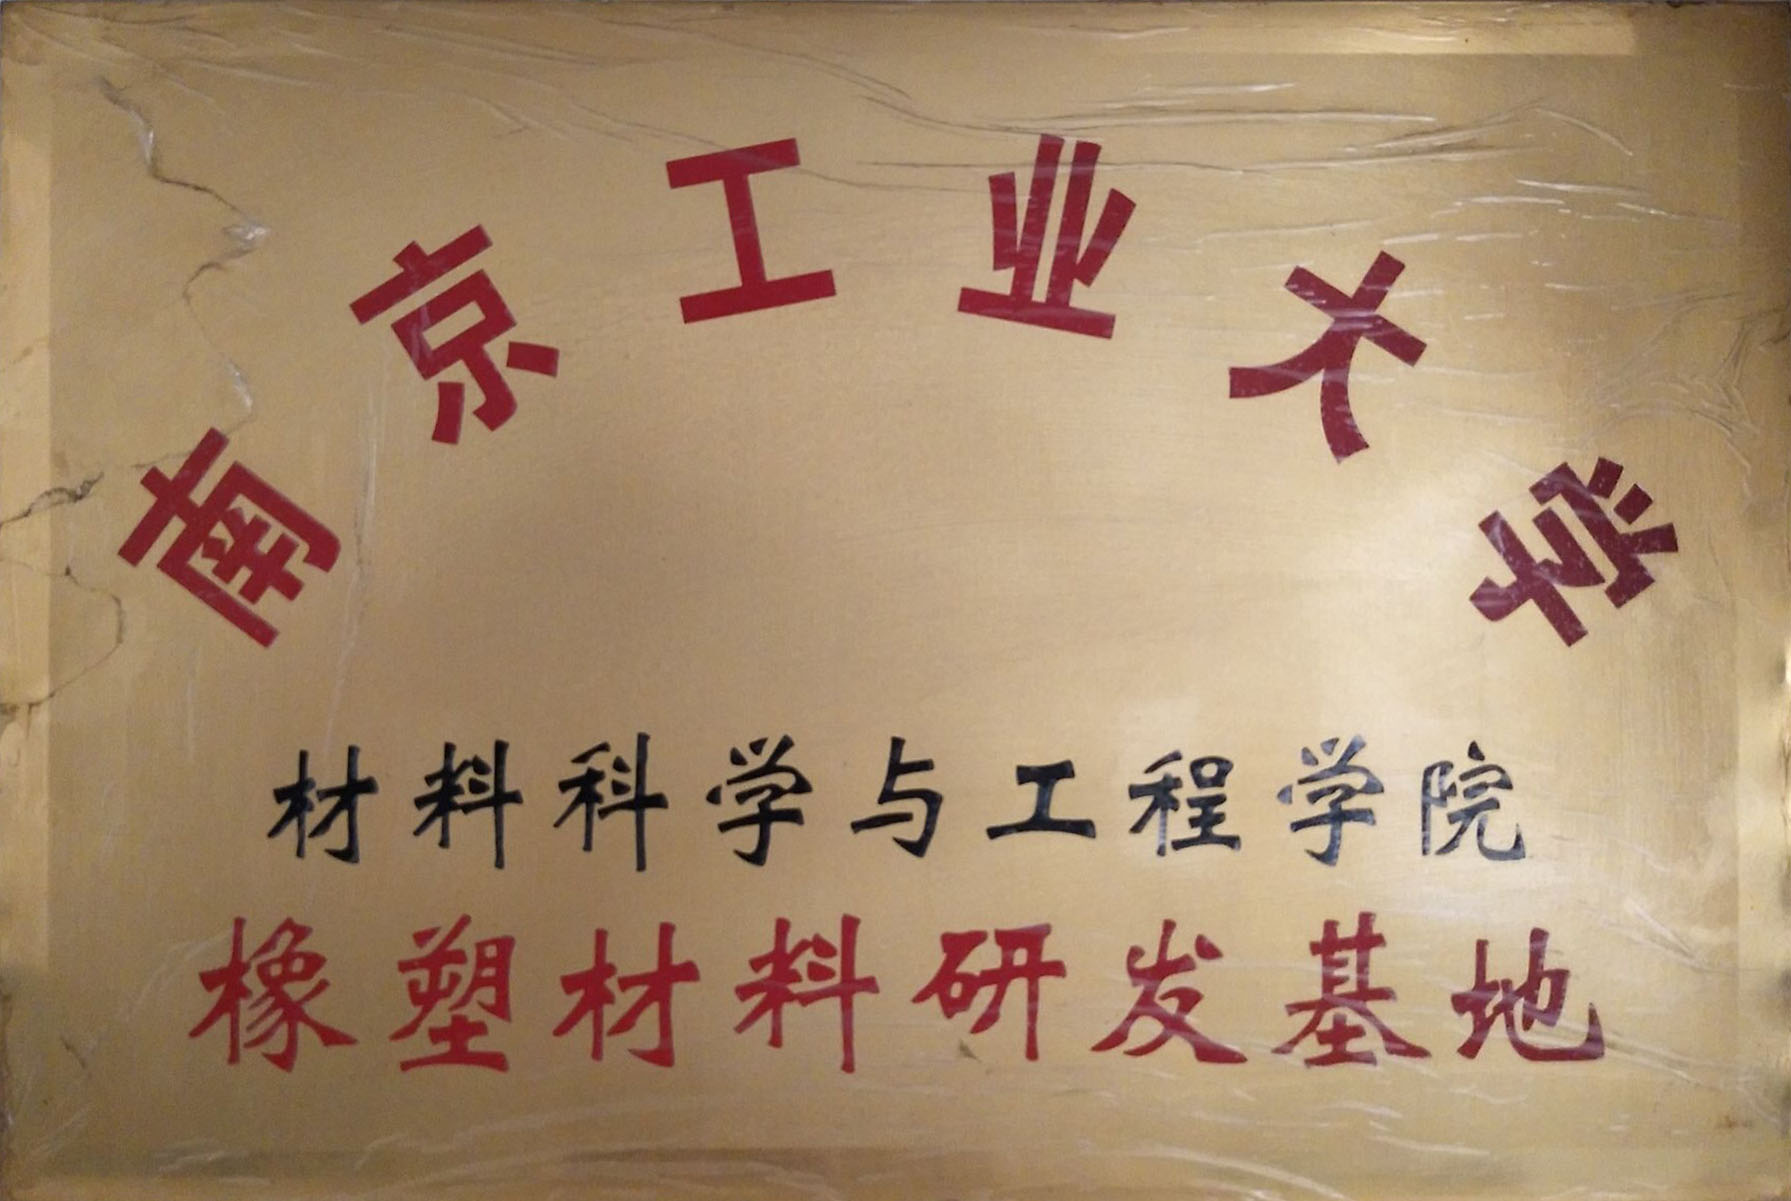 南京工业大学
材料科学与工程学院
橡塑材料研发基地